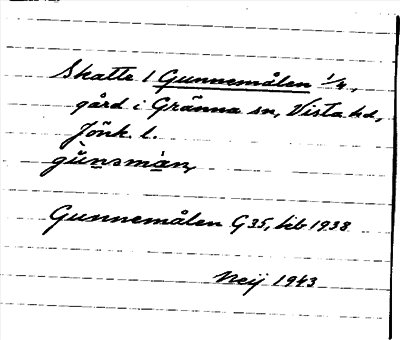 Skatte 1 Gunnemålen 1/4,
gård i Gränna sn, Vista hd,
Jönk. l.
gùnsmàn,
Gunnemålen G35, bib 1938
Neij 1943